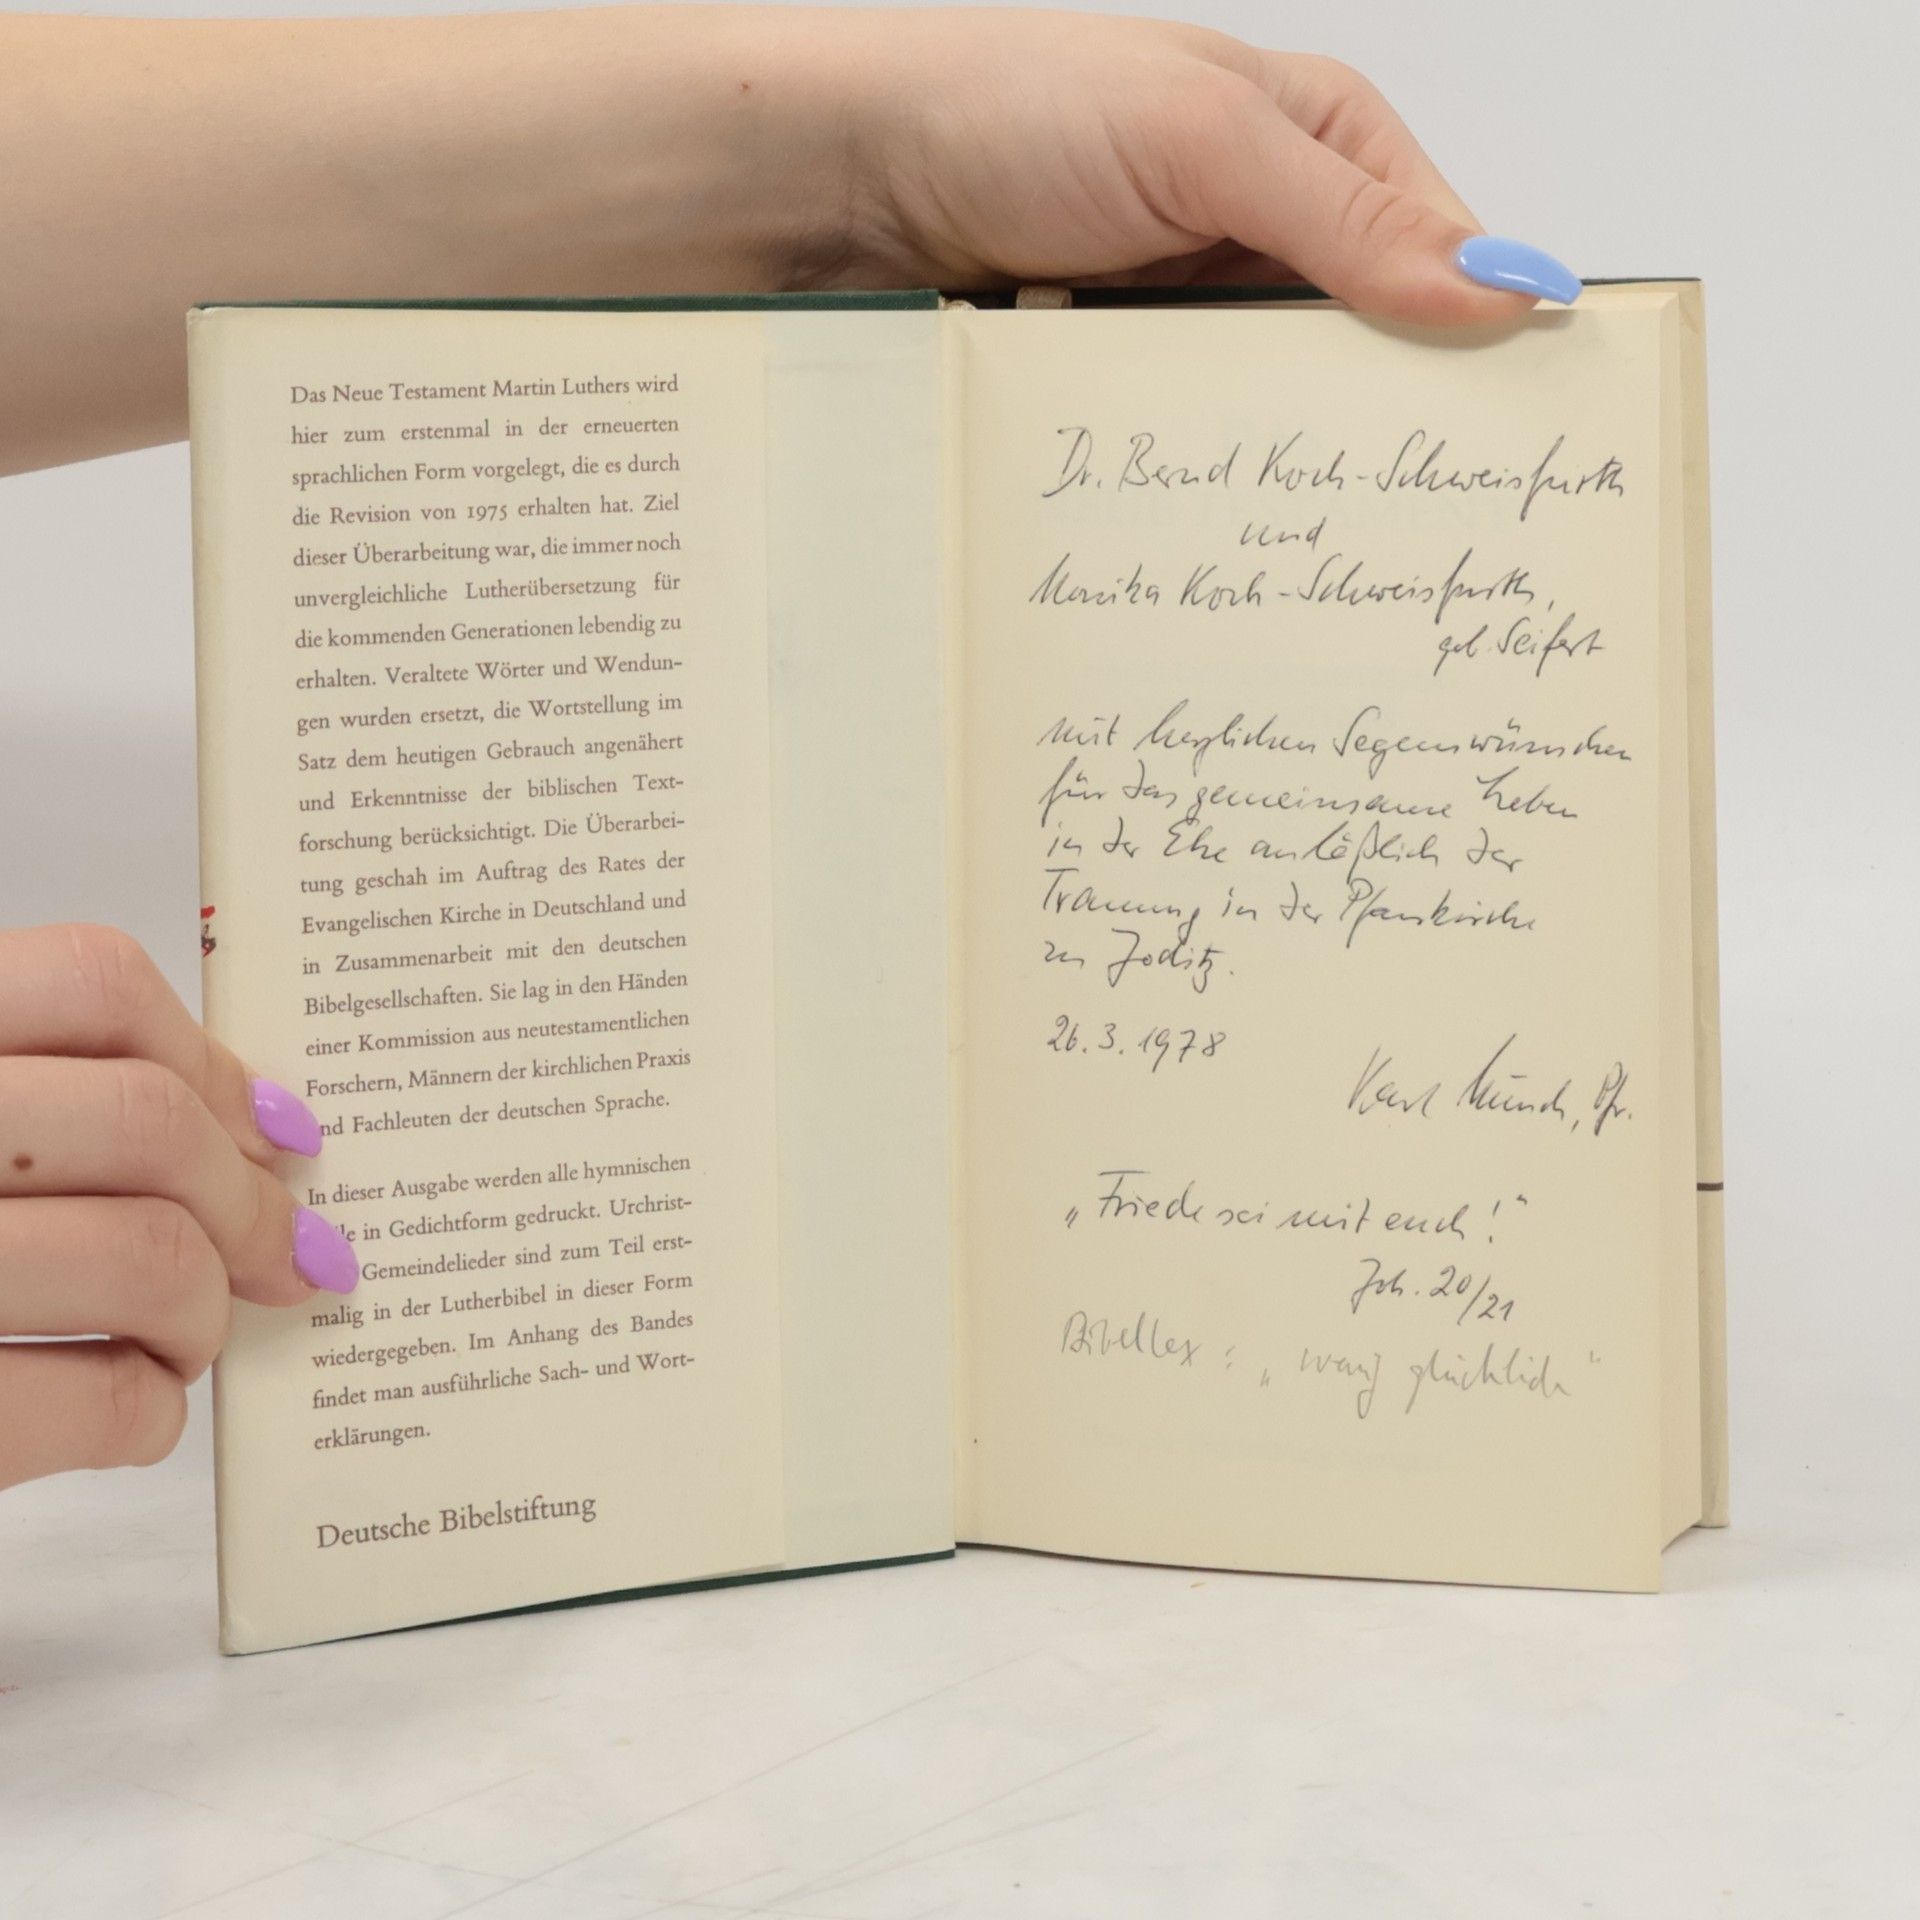 Das Neue Testament Martin Luthers wird
hier zum erstenmal in der erneuerten
sprachlichen Form vorgelegt, die es durch
die Revision von 1975 erhalten hat. Ziel
dieser Überarbeitung war, die immer noch
unvergleichliche Lutherübersetzung für
die kommenden Generationen lebendig zu
erhalten. Veraltete Wörter und Wendun-
gen wurden ersetzt, die Wortstellung im
Satz dem heutigen Gebrauch angenähert
und Erkenntnisse der biblischen Text-
forschung berücksichtigt. Die Überarbei-
tung geschah im Auftrag des Rates der
Evangelischen Kirche in Deutschland und
in Zusammenarbeit mit den deutschen
Bibelgesellschaften. Sie lag in den Händen
einer Kommission aus neutestamentlichen
Forschern, Männern der kirchlichen Praxis
nd Fachleuten der deutschen Sprache.
In dieser Ausgabe werden alle hymnischen
le in Gedichtform gedruckt. Urchrist-
Gemeindelieder sind zum Teil erst-
malig in der Lutherbibel in dieser Form
wiedergegeben. Im Anhang des Bandes
findet man ausführliche Sach- und Wort-
erklärungen.
Deutsche Bibelstiftung
Dr. Bernd Koch-Schweisfurth
und
Monika Koch-Schweisfurth,
geb. Seifert
mit herzlichen Segenswünschen
für das gemeinsame Leben
in der Ehe anläßlich der
Trauung in der Pfarrkirche
zu Joditz.
26.3.1978
Karl Münch, Pfr.
„Friede sei mit euch!“
Joh. 20/21
„ glücklich“